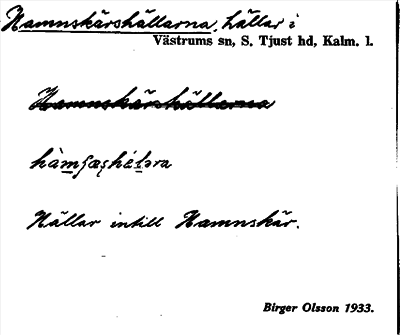 Hamnskärshällarna, hällar i
Västrums sn, S. Tjust hd, Kalm. l.
Hamnskärshällarna
Hällar intill Hamnskär.
Birger Olsson 1933.